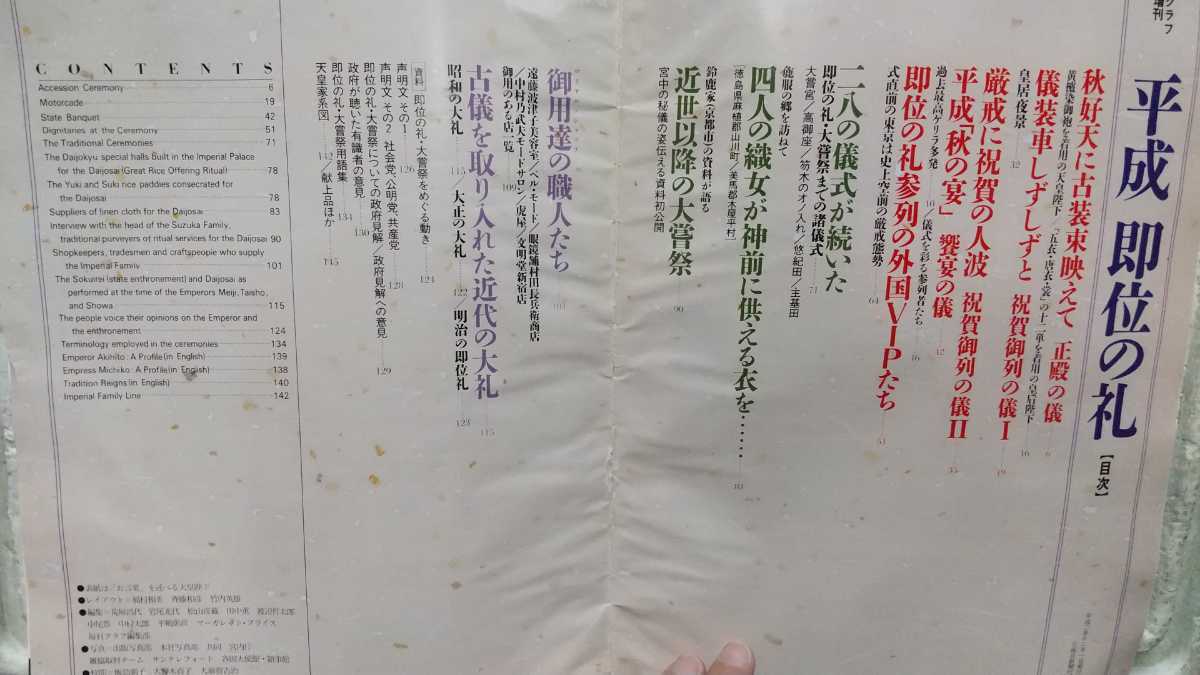 グラフ
増刊
平成 即位の礼【目次】
秋好天に古装束映えて 正殿の儀 6
黄櫨染御袍を着用の天皇陛下/「五衣・唐衣・裳」の十二単を着用の皇后陛下 16
儀装車しずしずと 祝賀御列の儀Ⅰ 19
皇居夜景 32
厳戒に祝賀の人波 祝賀御列の儀Ⅱ 35
平成「秋の宴」 饗宴の儀 42
過去最高ゲリラ多発 10/儀式を彩る参列者たち 46
即位の礼参列の外国VIPたち 51
式直前の東京は史上空前の厳戒態勢 64
二八の儀式が続いた
即位の礼・大嘗祭までの諸儀式 71
大嘗宮/高御座/笏木のオノ入れ/悠紀田/主基田
麁服の郷を訪ねて
四人の織女が神前に供える衣を…… 83
[徳島県麻植郡山川町/美馬郡木屋平村]
鈴鹿家(京都市)の資料が語る
近世以降の大嘗祭 90
宮中の秘儀の姿伝える資料初公開
御用達の職人たち 101
遠藤波津子美容室/ベル・モード/眼鏡舗村田長兵衛商店
/中村乃武夫モードサロン/虎屋/文明堂新宿店
御用のある店一覧 109
古儀を取り入れた近代の大礼 115
昭和の大礼 115/大正の大礼 122 明治の即位礼 123
資料 即位の礼・大嘗祭をめぐる動き 124
声明文 その1 128
声明文 その2 社会党、公明党、共産党 129
即位の礼・大嘗祭についての政府見解/政府見解への意見
政府が聴いた有識者の意見 130
即位の礼・大嘗祭用語集 134
天皇家系図 142/献上品ほか 145
CONTENTS
Accession Ceremony 6
Motorcade 19
State Banquet 42
Dignitaries at the Ceremony 51
The Traditional Ceremonies 71
The Daijokyu special halls built in the Imperial Palace
for the Daijosai (Great Rice Offering Ritual) 78
The Yuki and Suki rice paddies consecrated for
the Daijosai 78
Suppliers of linen cloth for the Daijosai 83
Interview with the head of the Suzuka Family,
traditional purveyors of ritual services for the Daijosai 90
Shopkeepers, tradesmen and craftspeople who supply
the Imperial Family 101
The Sokuirei (state enthronement) and Daijosai as
performed at the time of the Emperors Meiji, Taisho,
and Showa 115
The people voice their opinions on the Emperor and
the enthronement 124
Terminology employed in the ceremonies 134
Emperor Akihito: A Profile (in English) 139
Empress Michiko: A Profile (in English) 138
Tradition Reigns (in English) 140
Imperial Family Line 142
●表紙は「お言葉」を述べる天皇陛下
●レイアウト=
●編集=
毎日グラフ編集部
●写真=出版写真部 本社写真部 共同 宮内庁